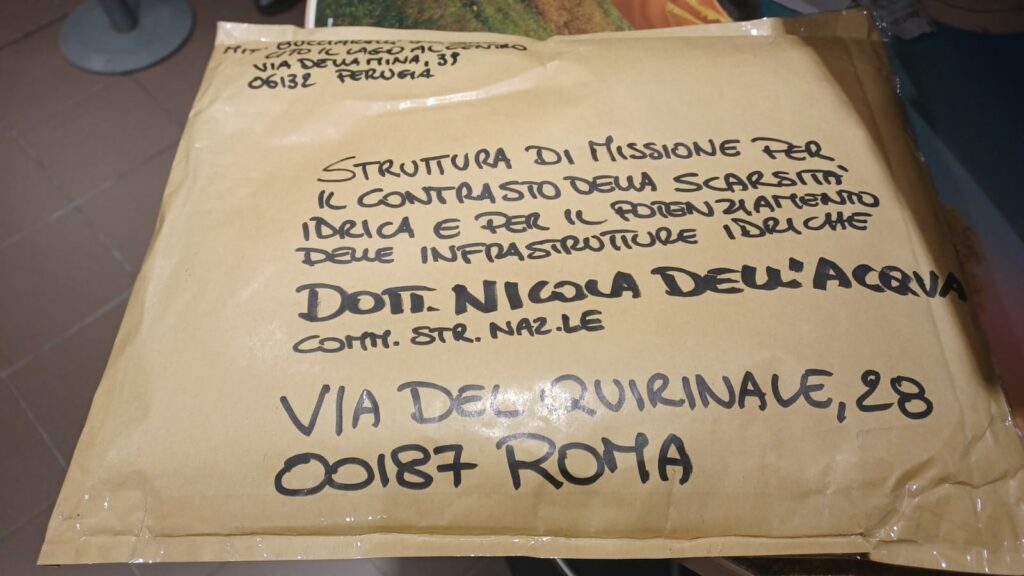 MIT.
CITO IL LAGO AL CENTRO
VIA DELLA MINA, 35
06132 PERUGIA
STRUTTURA DI MISSIONE PER
IL CONTRASTO DELLA SCARSITÀ
IDRICA E PER IL POTENZIAMENTO
DELLE INFRASTRUTTURE IDRICHE
DOTT. NICOLA DELL'ACQUA
COMM. STR. NAZ.LE
VIA DEL QUIRINALE, 28
00187 ROMA